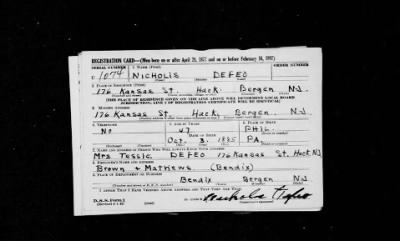 REGISTRATION CARD—(Men born on or after April 28, 1877 and on or before February 16, 1897)
SERIAL NUMBER 1. NAME (Print)
U 1074 NICHOLIS DEFEO
2. PLACE OF RESIDENCE (Print)
176 Kansas St. Hack. Bergen NJ
[THE PLACE OF RESIDENCE GIVEN ON THE LINE ABOVE WILL DETERMINE LOCAL BOARD
JURISDICTION; LINE 2 OF REGISTRATION CERTIFICATE WILL BE IDENTICAL]
3. MAILING ADDRESS
176 Kansas St. Hack. Bergen N.J.
4. TELEPHONE 5. AGE IN YEARS 6. PLACE OF BIRTH
No 47 PHIL.
DATE OF BIRTH
Oct. 3. 1885 PA.
7. NAME AND ADDRESS OF PERSON WHO WILL ALWAYS KNOW YOUR ADDRESS
Mrs Tessie DEFEO 176 Kansas St. Hack NJ
8. EMPLOYER'S NAME AND ADDRESS
Brown + Mathews (Bendix)
9. PLACE OF EMPLOYMENT OR BUSINESS
Bendix Bergen NJ
I AFFIRM THAT I HAVE VERIFIED ABOVE ANSWERS AND THAT THEY ARE TRUE.
D.S.S. Form 1